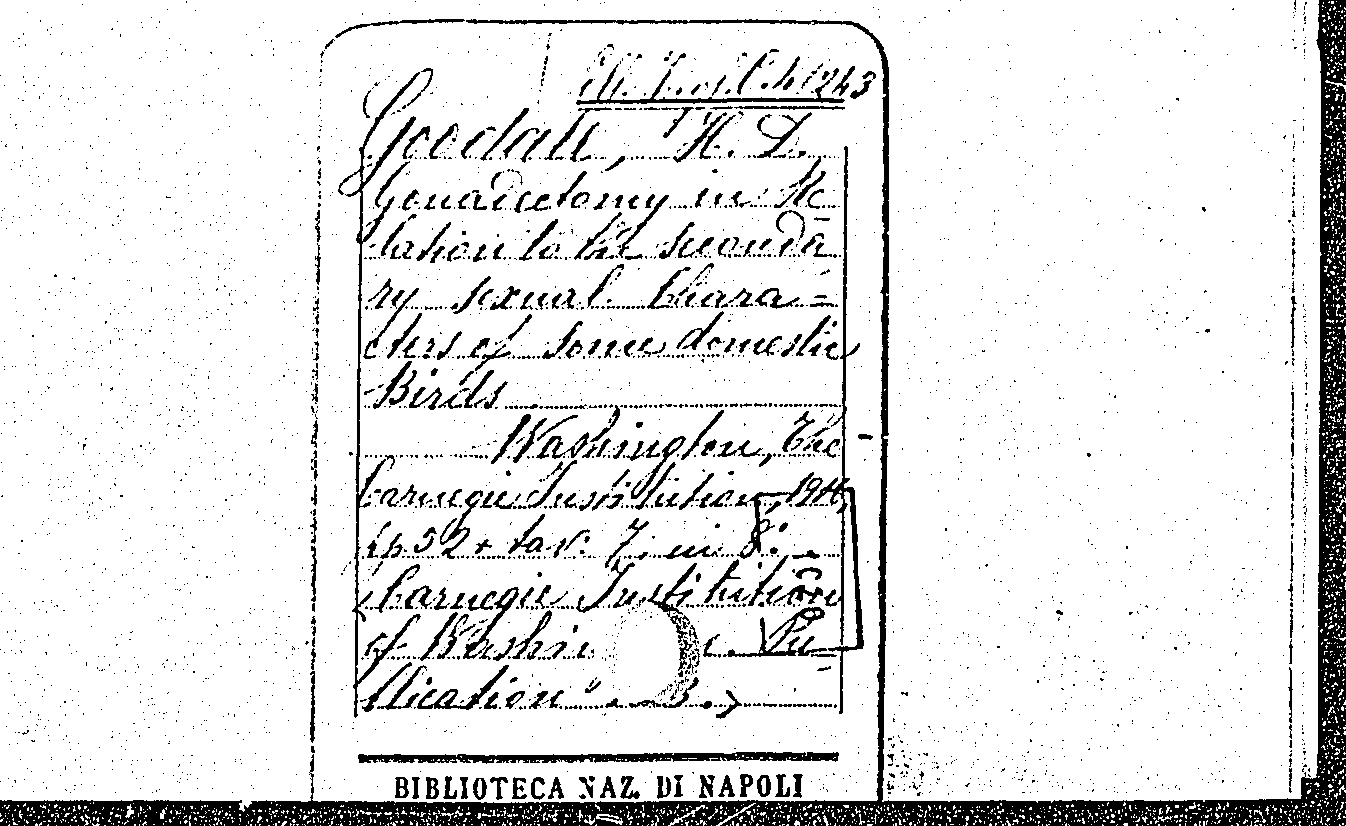 Goodall, H. D.
Gonadectomy in Re
lation to the seconda
ry sexual Chara-
cters of some domestic
Birds
Washington, The
Carnegie Institution, 1916,
pp 52 + tav. 7, in 8°. -
(Carnegie Institution
of Washin Pu-
blication
BIBLIOTECA NAZ. DI NAPOLI